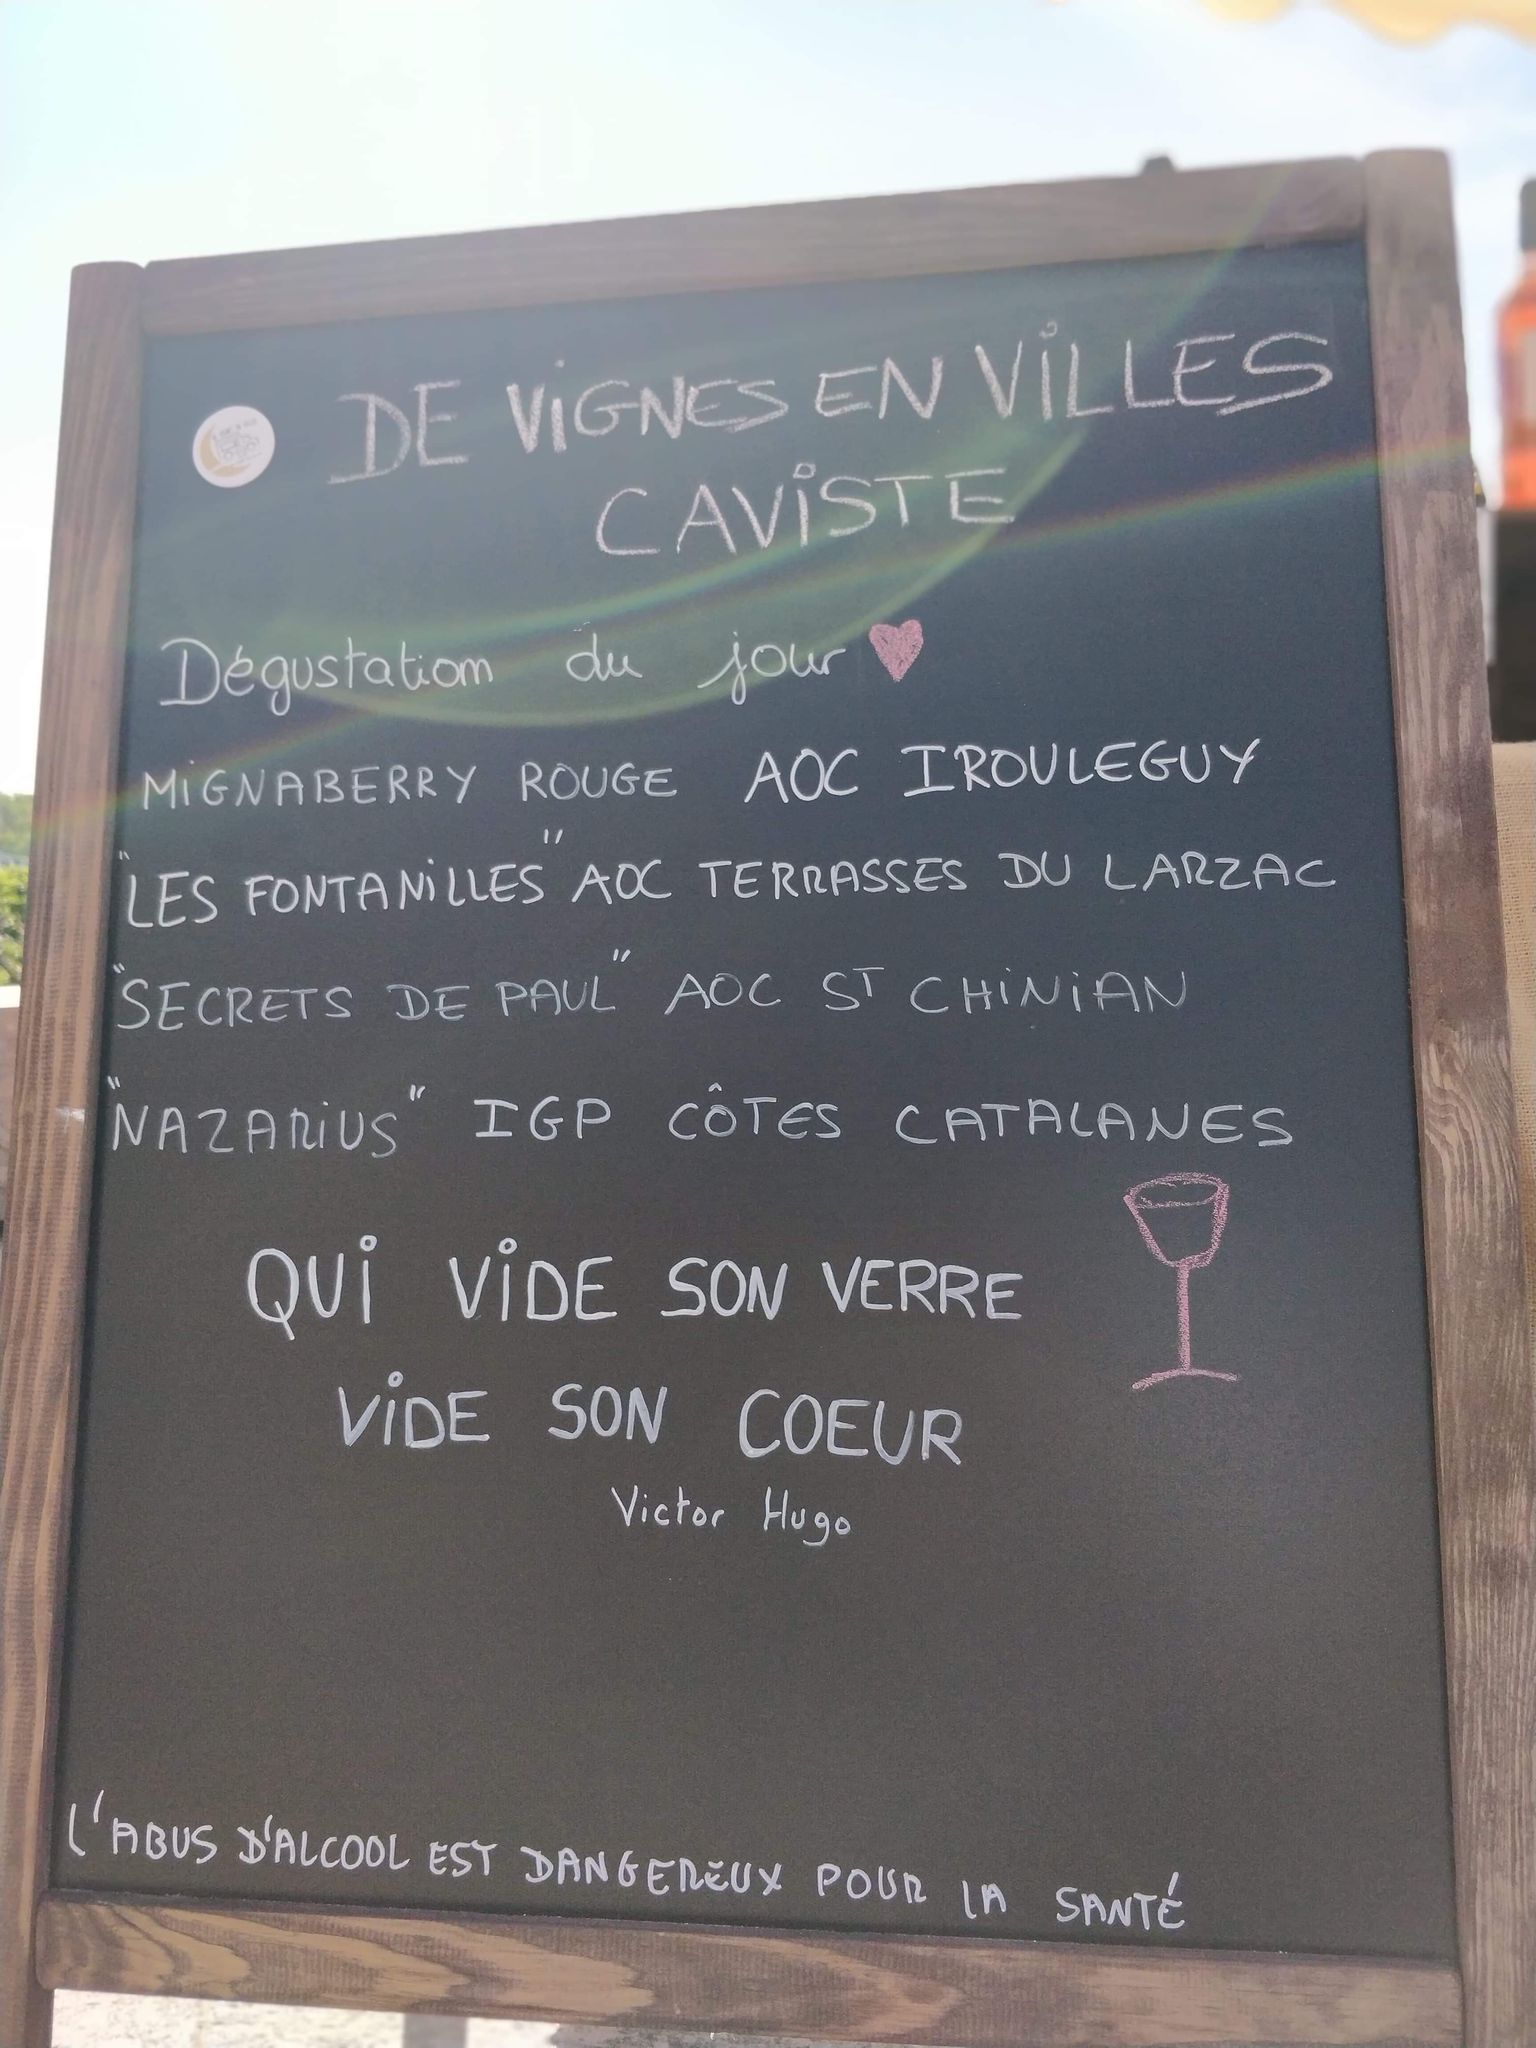 DE VIGNES EN VILLES
CAVISTE
Dégustation du jour
MIGNABERRY ROUGE AOC IROULEGUY
"LES FONTANILLES" AOC TERRASSES DU LARZAC
"SECRETS DE PAUL" AOC ST CHINIAN
"NAZARIUS" IGP CÔTES CATALANES
QUI VIDE SON VERRE
VIDE SON COEUR
Victor Hugo
L'ABUS D'ALCOOL EST DANGEREUX POUR LA SANTÉ